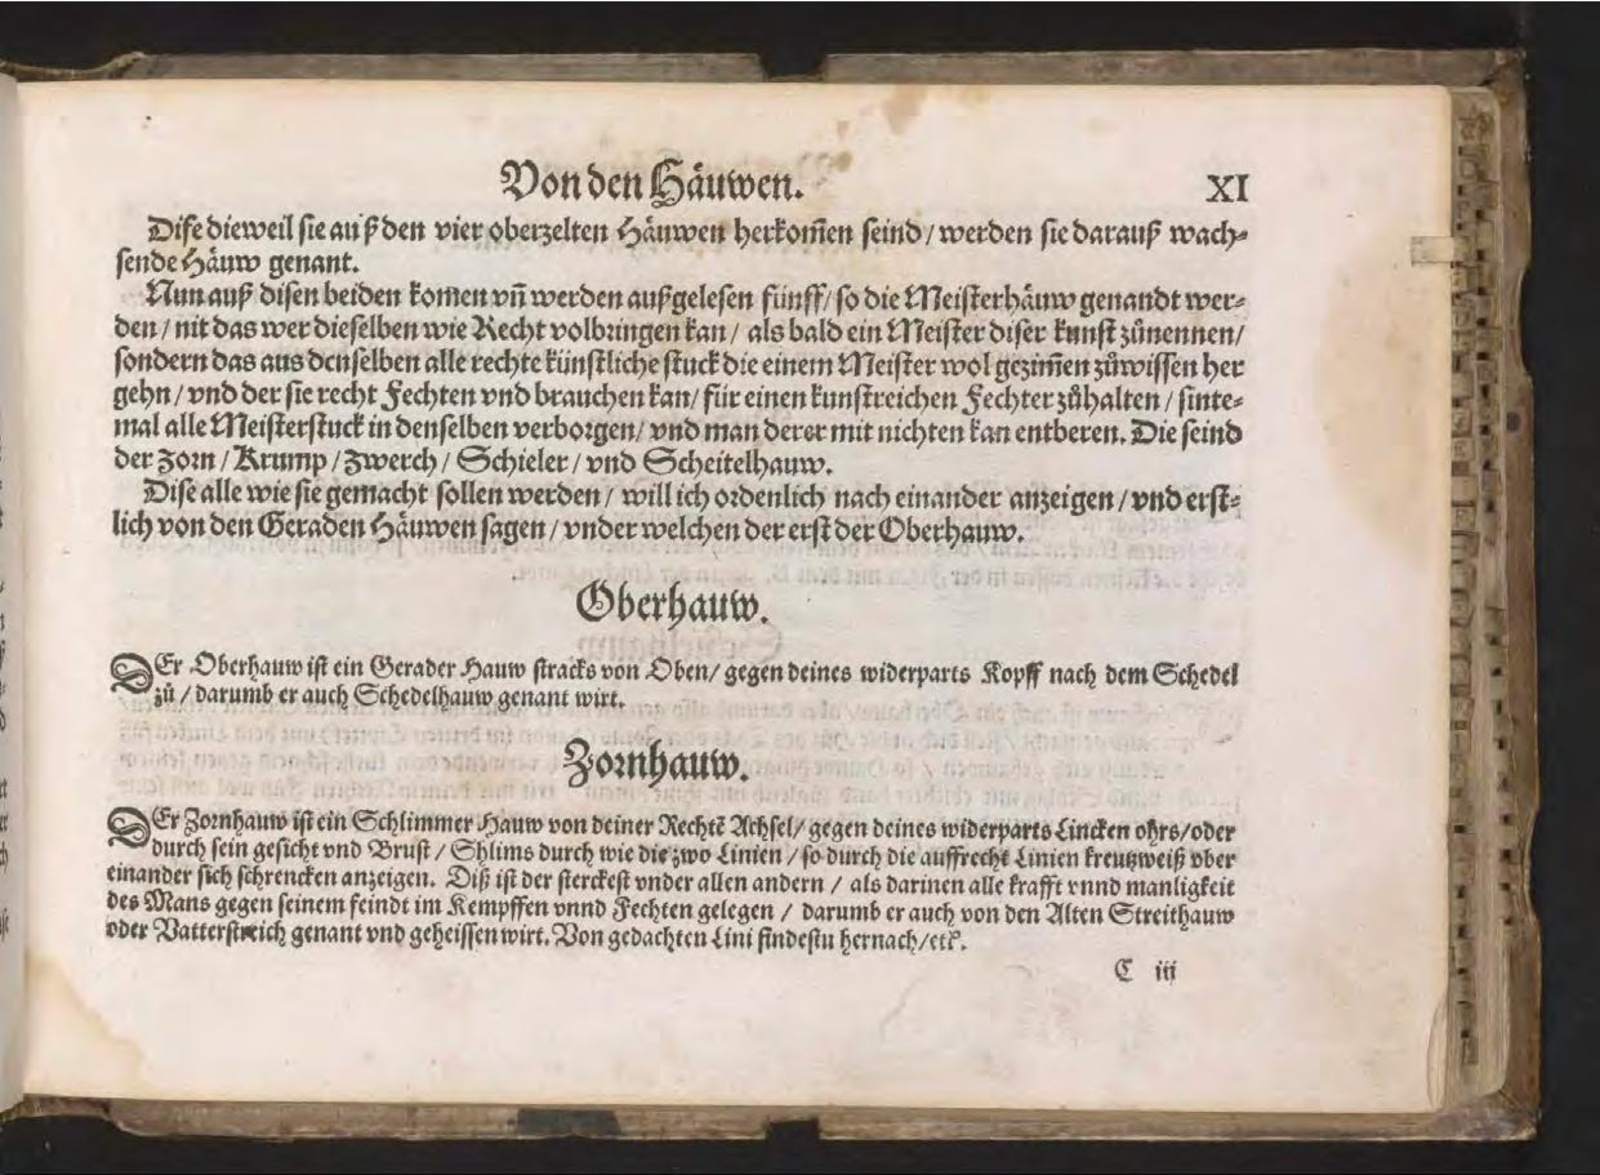 Von den Häuwen.
XI
Dise dieweil sie auß den vier oberzelten Häuwen herkom̃en seind / werden sie darauß wach⸗
sende Häuw genant.
Nun auß disen beiden komen vñ werden außgelesen fünff / so die Meisterhäuw genandt wer⸗
den / nit das wer dieselben wie Recht volbringen kan / als bald ein Meister diser kunst zůnennen /
sondern das aus denselben alle rechte künstliche stuck die einem Meister wol gezim̃en zůwissen her
gehn / vnd der sie recht Fechten vnd brauchen kan / für einen kunstreichen Fechter zůhalten / sinte⸗
mal alle Meisterstuck in denselben verborgen / vnd man derer mit nichten kan entberen. Die seind
der Zorn / Krump / Zwerch / Schieler / vnd Scheitelhauw.
Dise alle wie sie gemacht sollen werden / will ich ordenlich nach einander anzeigen / vnd erst⸗
lich von den Geraden Häuwen sagen / vnder welchen der erst der Oberhauw.
Oberhauw.
DEr Oberhauw ist ein Gerader Hauw stracks von Oben / gegen deines widerparts Kopff nach dem Schedel
zů / darumb er auch Schedelhauw genant wirt.
Zornhauw.
DEr Zornhauw ist ein Schlimmer Hauw von deiner Rechtẽ Achsel / gegen deines widerparts Lincken ohrs / oder
durch sein gesicht vnd Brust / Shlims durch wie die zwo Linien / so durch die auffrecht Linien kreutzweiß vber
einander sich schrencken anzeigen. Diß ist der sterckest vnder allen andern / als darinen alle krafft vnnd manligkeit
des Mans gegen seinem feindt im Kempffen vnnd Fechten gelegen / darumb er auch von den Alten Streithauw
oder Vatterstreich genant vnd geheissen wirt. Von gedachten Lini findestu hernach / etc.
C iii